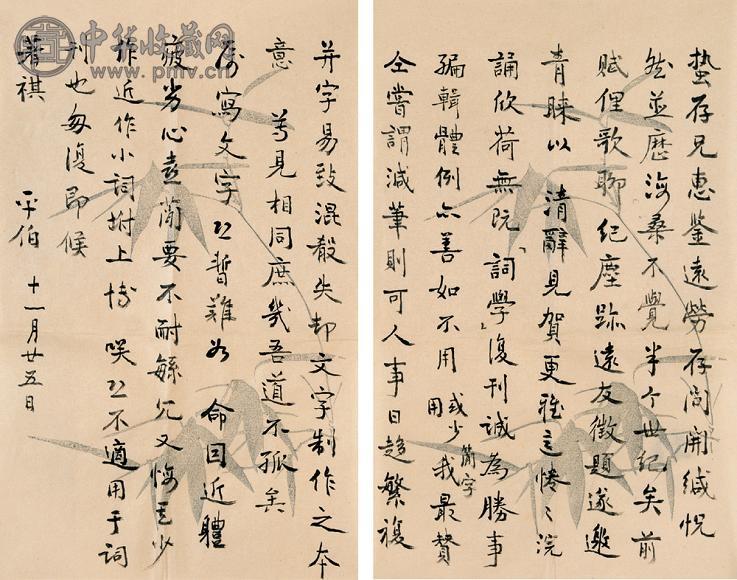 蟄存兄惠鑒遠勞存問開緘怳
然並歷海桑不覺半个世紀矣前
賦俚歌聊紀塵跡遠友徵題遂邀
青睞以清辭見賀更雅意惓〻浣
誦欣荷無既「詞學」復刊誠為勝事
編輯體例亦善如不用或少用簡字我最贊
仝嘗謂減筆則可人事日趨繁複
并字易致混殽失却文字制作之本
意 尊見相同庶幾吾道不孤矣
屬寫文字恐暫難如 命因近體
疲劣心意闌要不耐緐冗又悔其少
作近作小詞坿上博咲恐不適用于詞
刊也匆復即候
著祺 平伯 十一月廿五日
中华收藏网
www.pmv.cn